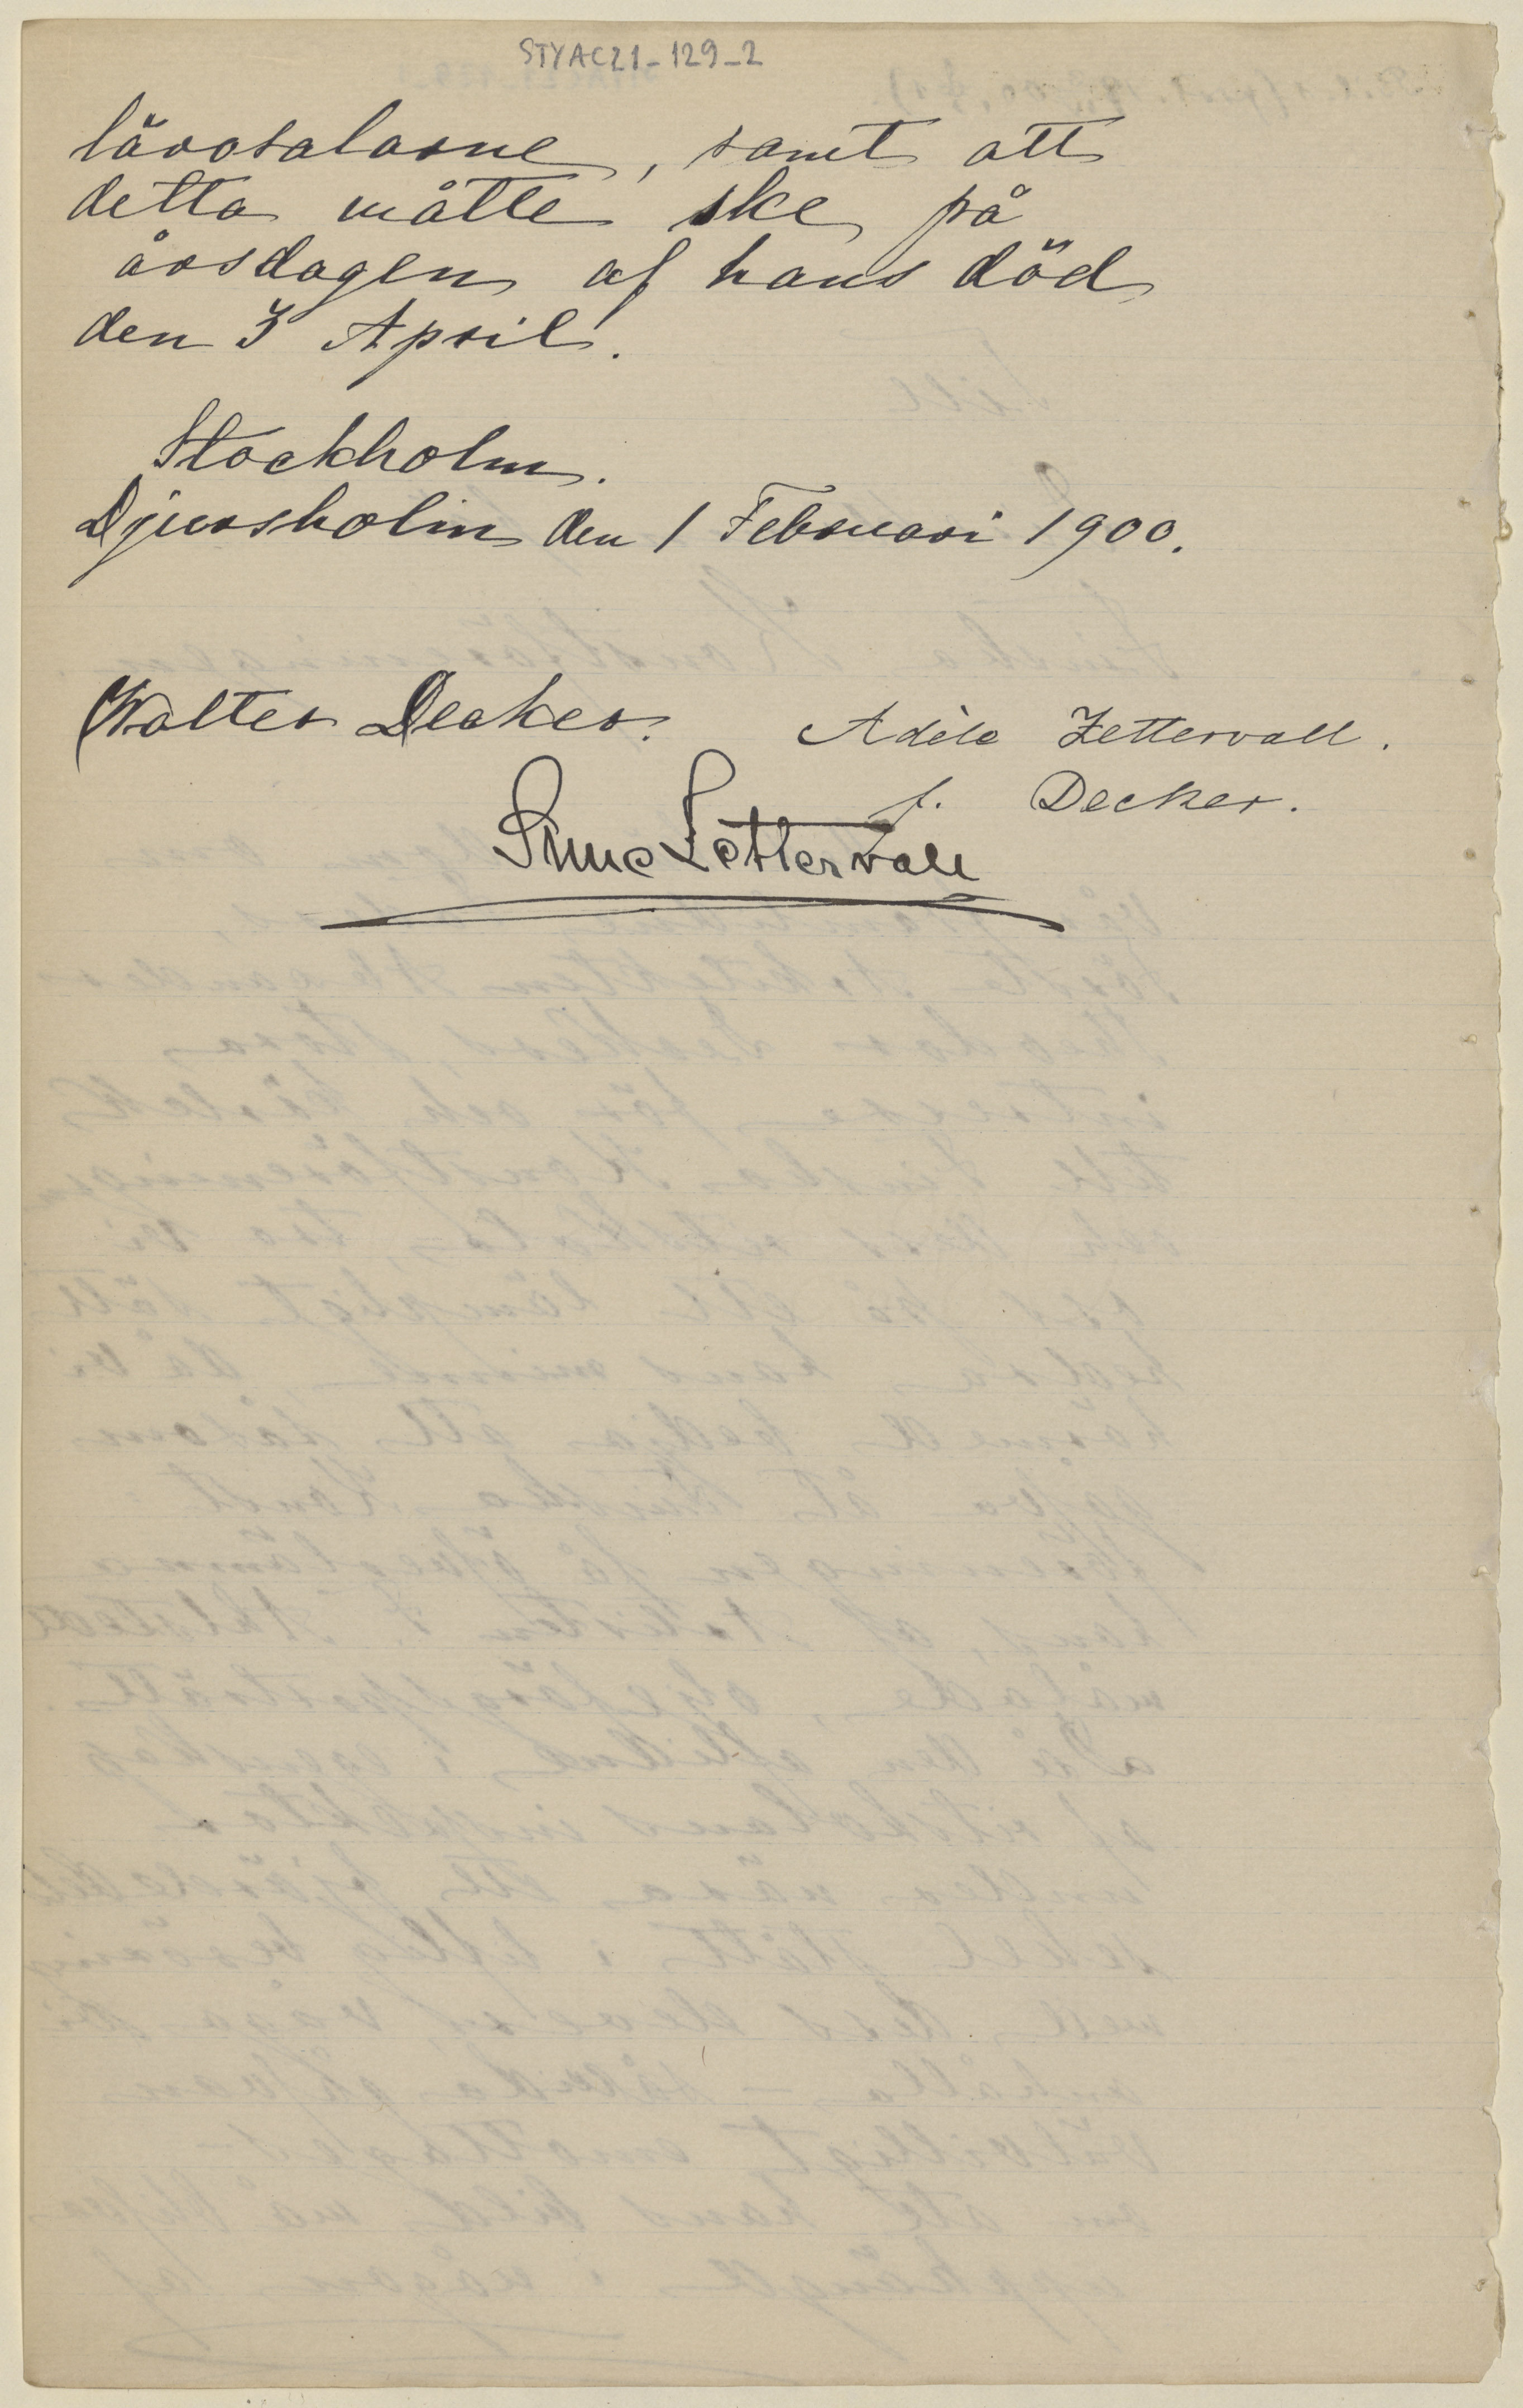 STYAC21-129-2
lärosalarne, samt att
detta måtte ske på
årsdagen af hans död
den 3 April.
Stockholm.
Djursholm den 1 Februari 1900.
Walter Decker. Adèle Zettervall.
f. Decker.
Zettervall